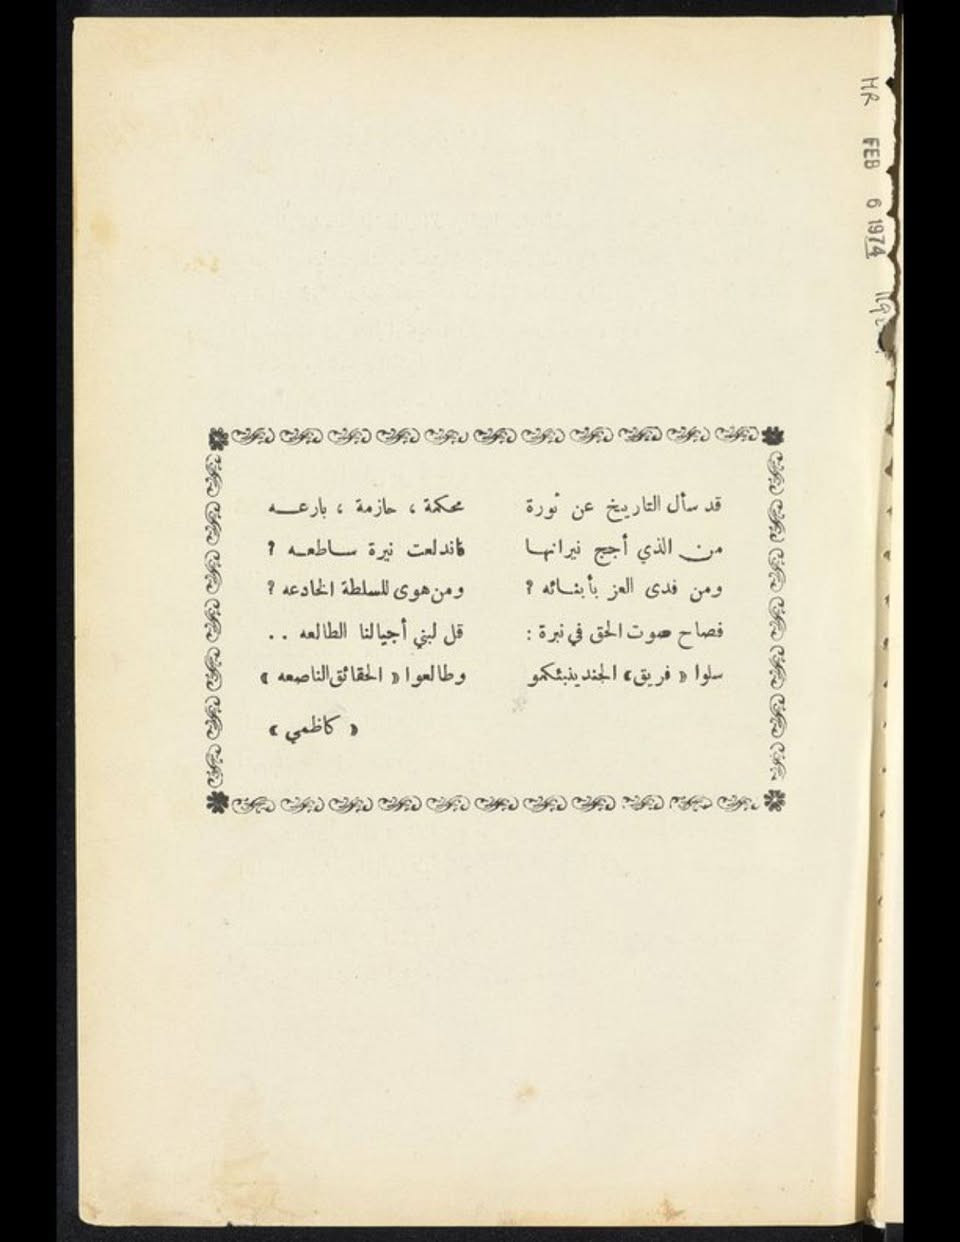 MR FEB 6 1974
قد سأل التاريخ عن ثورة محكمة ، حازمة ، بارعـــه
من الذي أجج نيرانهـا فاندلعت نيرة ســاطعـه ؟
ومن فدى العز بأبنـائه ؟ ومن هوى للسلطة الخادعه ؟
فصاح صوت الحق في نبرة : قل لبني أجيالنا الطالعه . .
سلوا « فريق » الجند ينبئكمو وطالعوا « الحقائق الناصعه »
« كاظمي »